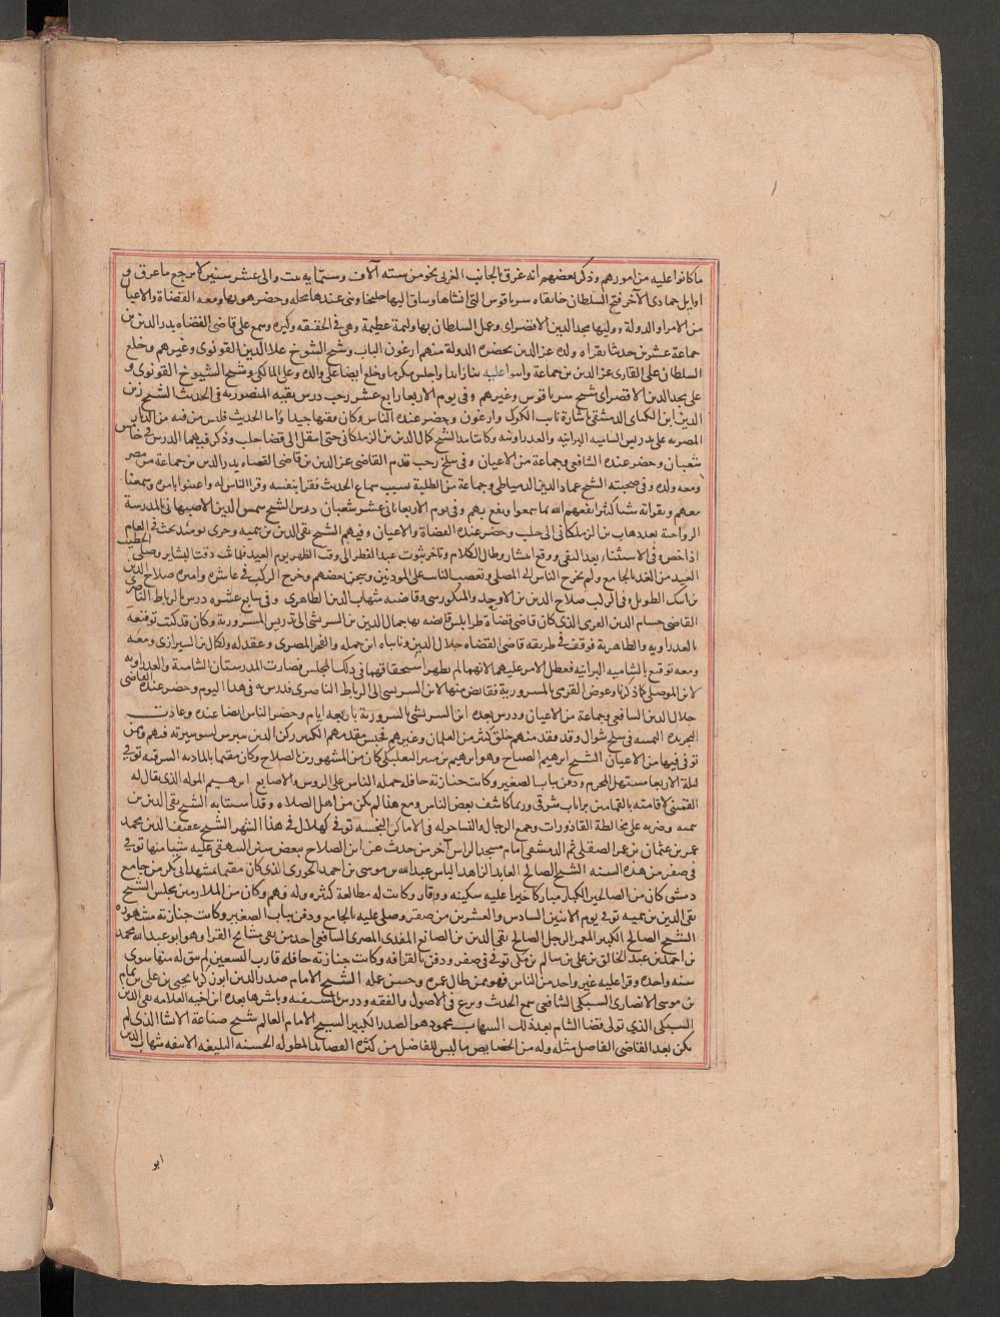 ما كانوا عليه من امورهم وذكر بعضهم انه غرق بالجانب الغربي نحو من سته آلاف وستمايه بيت والى عشر سنين لا يرجع ما غرق و
اوايل جمادى الآخر فتح السلطان خانقاه سرياقوس التي انشاها وساق اليها خليجا وبنى عندها محله وحضر هو بها ومعه القضاة والاعيان
من الامرا والدولة ووليها مجد الدين الاقصراى وعمل السلطان بها وليمة عظيمة وسمع على قاضى القضاه بدر الدين بن
جماعة عشرين حديثا بقراه ولده عز الدين بحضره الدولة منهم ارغون النايب وشيخ الشيوخ علا الدين القونوى وغيرهم وخلع
السلطان على القارى عز الدين بن جماعة واجلس مكرما وخلع ايضا على والده وعلى المالكى وشيخ الشيوخ القونوى و
على مجد الدين الاقصراى شيخ سرياقوس وغيرهم وفى يوم الاربعا رابع عشر رجب درس بقبه المنصوريه فى الحديث الشيخ زين
الدين ابن الكتانى الدمشقى باشارة نايب الكرك وارغون وحضر عنده الناس وكان فقيها جيدا واما الحديث فليس من فنه
الشيخ كمال الدين بن الزملكانى حتى انتقل الى قضا حلب الدرس فى خامس
شعبان وحضر عنده الشافعى وجماعة من الاعيان وفى سلخ رجب قدم القاضى عز الدين بن قاضى القضاه بدر الدين بن جماعة من مصر
ومعه ولده وفى صحبته الشيخ عماد الدين الدمياطى وجماعة من الطلبة بسبب سماع الحديث فقرا بنفسه وقرا الناس له واعتنوا بامره وسمعنا
معهم وبقراته شيا كثيرا نفعهم الله بما سمعوا ونفع بهم وفى يوم الاربعا ثانى عشر شعبان درس الشيخ شمس الدين الاصبهانى بالمدرسة
الرواحية بعد ذهاب بن الزملكانى الى حلب وحضر عنده القضاة والاعيان وفيهم الشيخ تقى الدين بن تيميه وجرى يومئذ بحث فى العام
اذا خص وفى الاستثناء بعد النفى ووقع انتشار وطال الكلام وتاخر ثبوت عيد الفطر الى وقت الظهر يوم العيد فلما ثبت دقت البشاير وصلى الخطيب
العيد من الغد بالجامع ولم يخرج الناس الى المصلى وتغضب الناس على الموذنين وسجن بعضهم وخرج الركب فى عاشره واميره صلاح الدين
بن ايبك الطويل وفى الركب صلاح الدين بن الاوحد والمنكورسى وقاضيه شهاب الدين الظاهرى وفى سابع عشره درس بالرباط الناصرى
القاضى حسام الدين القرمى الذى كان قاضى قضاة طرابلس قايضه بها جمال الدين بن الشريشى الى تدريس المسروريه وكان قد كتب توقيعه
بالعذراويه والظاهرية فوقف فى طريقه قاضى القضاه جلال الدين ونايباه ابن جمله والفخر المصرى وعقد له ولكمال بن الشيرازى ومعه
ومعه توقيع بالشاميه البرانيه فعطل الامر عليهما لانهما لم يظهرا استحقاقهما فى ذلك المجلس فصارت المدرستان الشاميه والعذراويه
لابن المرحل كما ذكرنا وعوض القرمى بالمسروريه فقايض منها لابن الشريشى الى الرباط الناصرى فدرس به فى هذا اليوم وحضر عنده القاضى
جلال الدين الشافعى وجماعة من الاعيان ودرس بعده ابن الشريشى بالمسرورية باربعه ايام وحضر الناس ايضا عنده وعادت
التجريده اليمنيه فى سلخ شوال وقد فقد منهم خلق كثير من الغلمان وغيرهم فحبس مقدمهم الكبير ركن الدين بيبرس لسو سيرته فيهم وممن
توفى فيها من الاعيان الشيخ ابرهيم الصياح وهو ابرهيم بن منير البعلبكى كان من المشهورين بالصلاح وكان مقيما بالماذنه الشرقيه توفى
ليلة الاربعا مستهل المحرم ودفن بباب الصغير وكانت جنازته حافله حمله الناس على الروس والاصابع ابرهيم الموله الذى يقال له
القمينى لاقامته بالقمامين برا باب شرقى وربما كاشف بعض الناس ومع هذا لم يكن من اهل الصلاه وقد استتابه الشيخ تقى الدين بن
تيميه وضربه على مخالطة القاذورات وجمع الرجال والنسا حوله فى الاماكن النجسه توفى كهلا فى هذا الشهر الشيخ عفيف الدين محمد
عمر بن عثمان بن عمر الصقلى ثم الدمشقى امام مسجد الراس آخر من حدث عن ابن الصلاح ببعض سنن البيهقى عليه شيا منها توفى
فى صفر من هذه السنه الشيخ الصالح العابد الزاهد الناسك عبدالله بن موسى بن احمد الجزرى الذى كان مقيما بمشهد ابى بكر من جامع
دمشق كان من الصالحين الكبار مباركا خيرا عليه سكينه ووقار وكانت له مطالعة كثيره وله فهم وكان من الملازمين مجلس الشيخ
تقى الدين بن تيميه توفى يوم الاثنين السادس والعشرين من صفر وصلى عليه بالجامع ودفن بباب الصغير وكانت جنازته مشهوده
الشيخ الصالح الكبير المعمر الرجل الصالح تقى الدين بن الصايغ المقرى المصرى الشافعى احد من بقى مشايخ القرا وهو ابو عبدالله محمد
بن احمد بن عبد الخالق بن على بن سالم بن مكى توفى فى صفر ودفن بالقرافه وكانت جنازته حافله قارب التسعين لم يبق له منها سوى
سنه واحده وقرا عليه غير واحد من الناس فهو ممن طال عمره وحسن عمله الشيخ الامام صدر الدين ابو زكريا يحيى بن على بن تمام
بن موسى الانصارى السبكى الشافعى سمع الحديث وبرع فى الاصول والفقه ودرس بالسيفيه وباشرها بعده ابن اخيه العلامه تقى الدين
السبكى الذى تولى قضا الشام بعد ذلك الشهاب محمود هو الصدر الكبير الشيخ الامام العالم شيخ صناعة الانشا الذى لم
يكن بعد القاضى الفاضل مثله وله من الخصايص ما ليس للفاضل من كثره القصايد المطوله الحسنه البليغه شهاب الدين
ابو